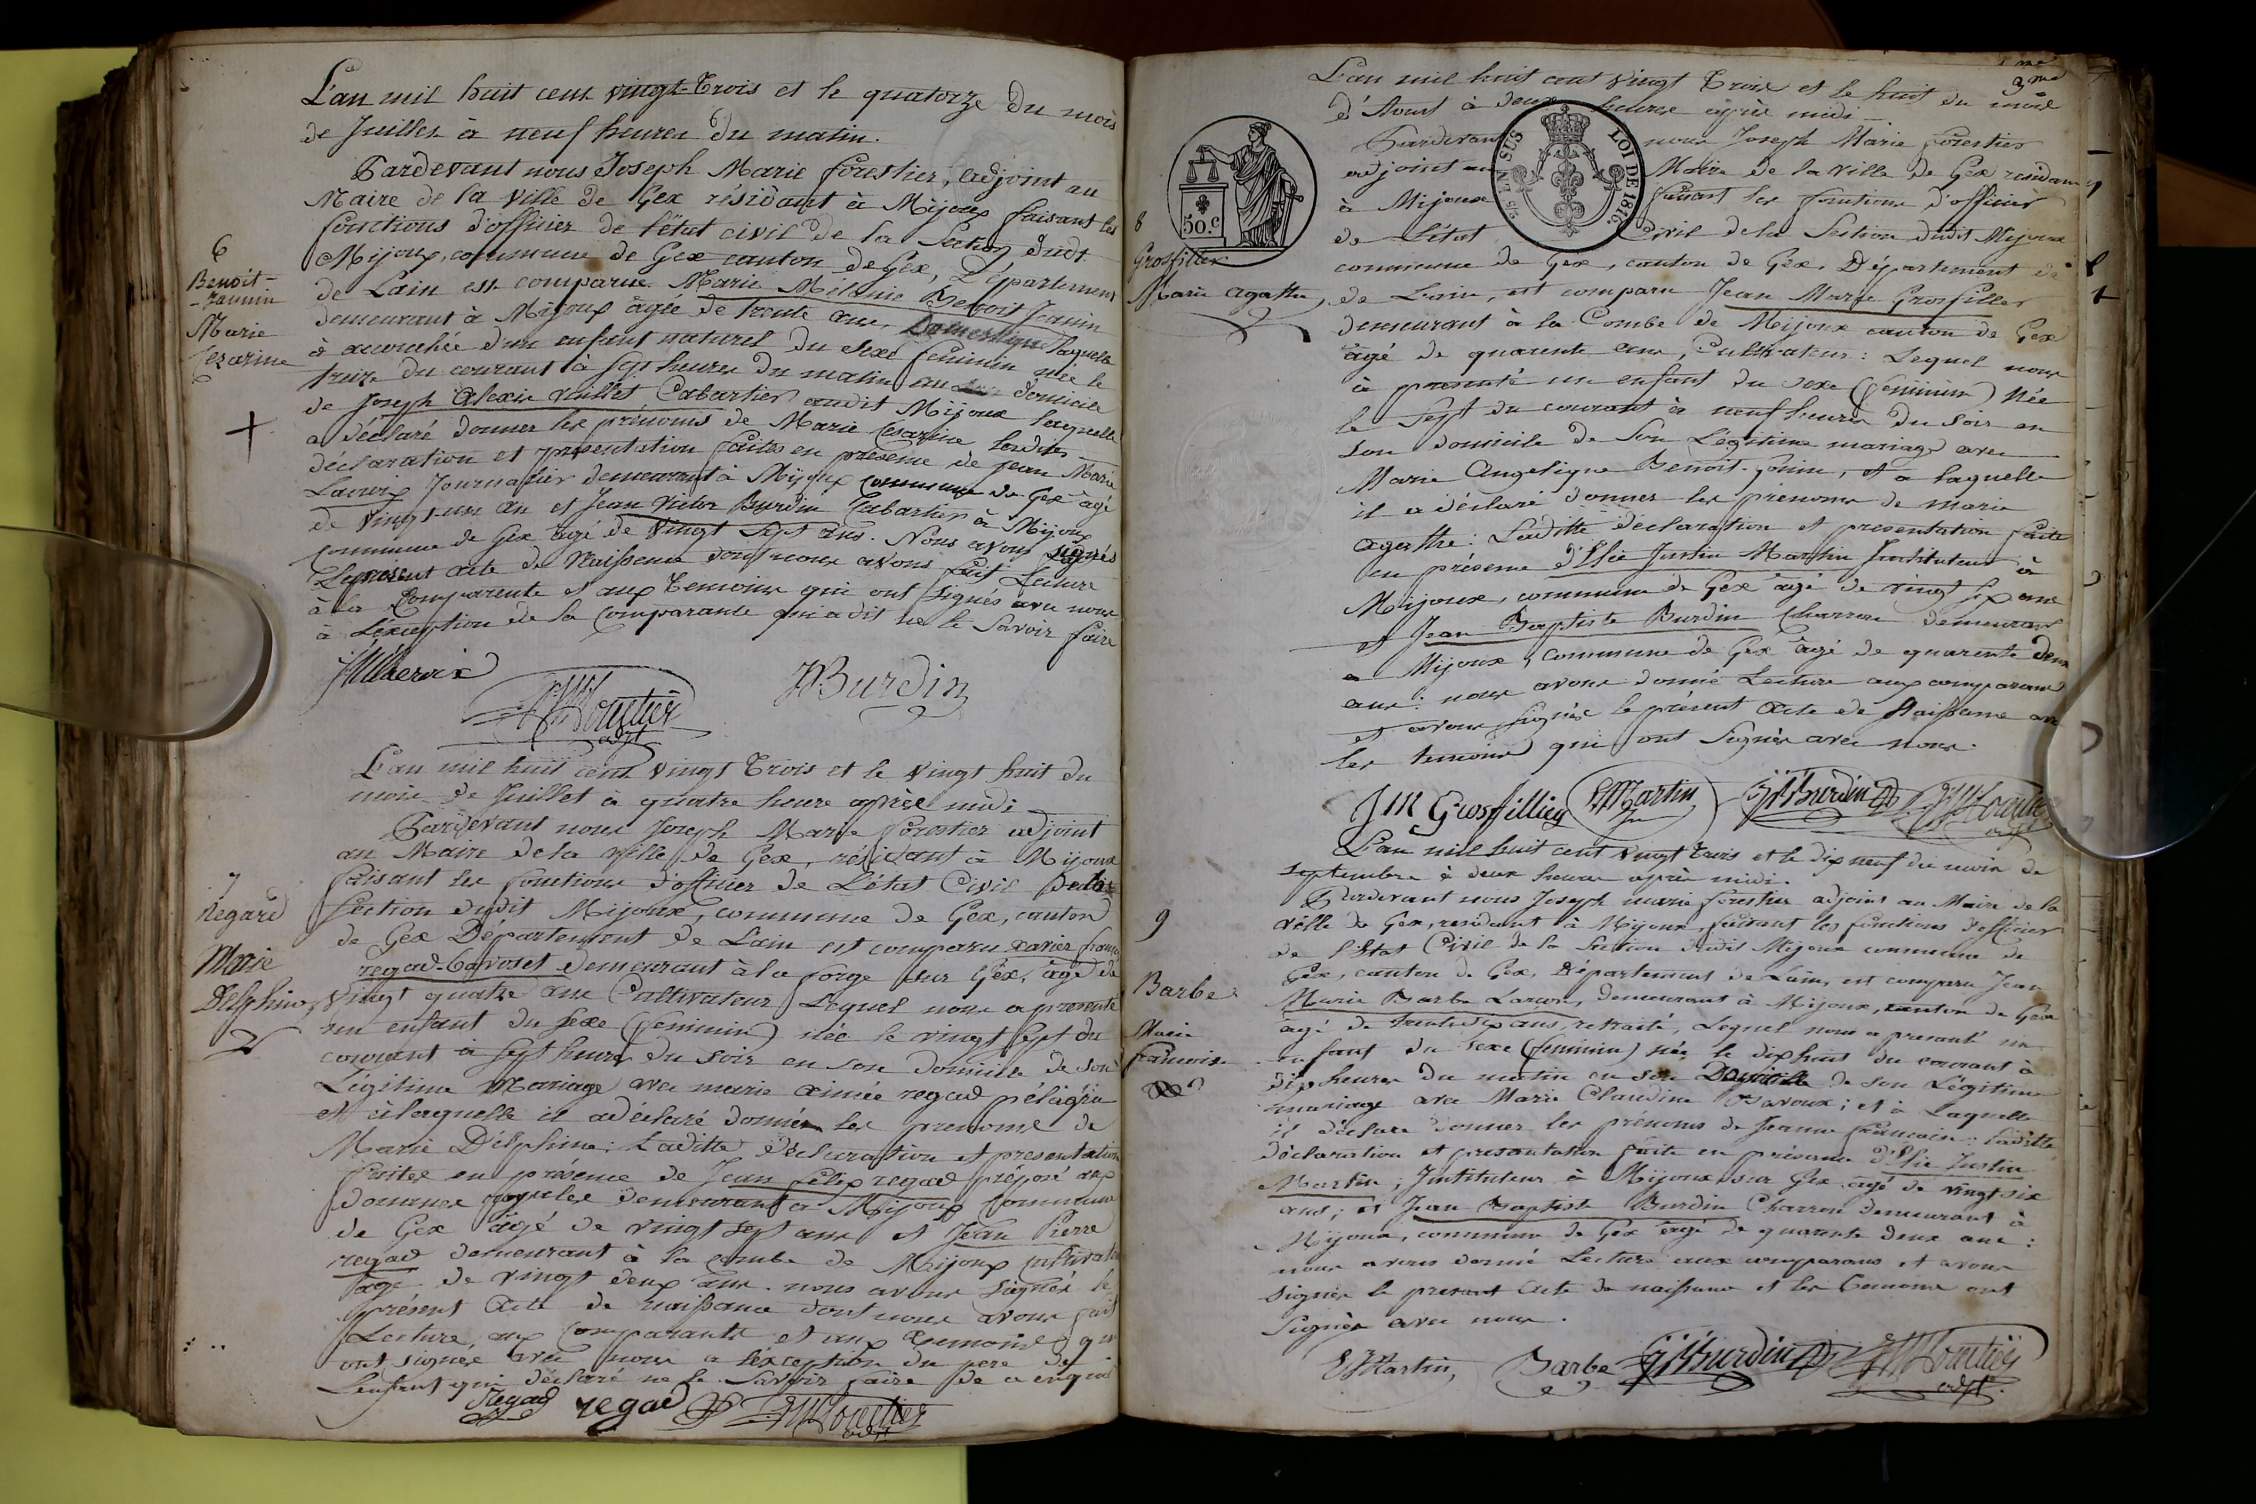 L'an mil huit cent vingt-trois et le quatorze du mois
de Juillet à neuf heures du matin.
Pardevant nous Joseph Marie forestier, adjoint au
Maire de la ville de Gex résidant à Mijoux faisant les
fonctions d'officier de l'état civil de la Section dudt
Mijoux, commune de Gex canton de Gex, Département
de Lain est comparue Marie Mélanie Benoit Jeanin
demeurant à Mijoux âgée de trente ans, Domestique laquelle
à accouchée d'un enfant naturel du sexe féminin née le
treize du courant à sept heures du matin au domicile
de Joseph Alexis Vuillet Cabartier audit Mijoux laquelle
a déclaré donner les prénoms de Marie Césarine lesdites
déclaration et présentation faites en présence de Jean Marie
Lacroix Journalier demeurant à Mijoux commune de Gex âgé
de vingt-un an et Jean Victor Burdin Cabartier à Mijoux
commune de Gex âgé de vingt sept ans. Nous avons signés
le present acte de Naissance dont nous avons fait lecture
à la Comparente et aux temoins qui ont signés avec nous
à l'exception de la Comparante qui a dit ne le savoir faire
6
Benoit-
-Jannin
Marie
Césarine
JMLacroix
JVBurdin
JMForestier
adjt
L'an mil huit cent vingt trois et le vingt huit du
mois de Juillet à quatre heure après midi
Pardevant nous Joseph Marie forestier adjoint
au Maire de la ville de Gex, résidant à Mijoux
faisant les fonctions d'officier de L'état Civil de la
section dudit Mijoux, commune de Gex, canton
de Gex Département de Lain est comparu xavier
regad-Gavoset demeurant à la forge sur Gex, âgé de
vingt quatre ans Cultivateur Lequel nous a presenté
un enfant du sexe (feminin) née le vingt sept du
courant à sept heures du soir en son domicile de son
Légitime Mariage avec marie aimée regad pélagrin
et à laquelle il a déclaré donner les prenoms de
Marie Délphine: Laditte Déclaration et présentation
faites en presence de Jean félix regad préposé aux
douanes demeurant à Mijoux commune
de Gex âgé de vingt sept ans et Jean Pierre
regad demeurant à la combe de Mijoux
âgé de vingt deux ans. nous avons signés le
présent Acte de naissance dont nous avons fait
Lecture, aux Comparants et aux temoins qui
ont signés avec nous a l'exception du pere de
Lenfant qui déclaré ne le savoir faire de a enquis
7
Regard
Marie
Delphine
Regad regad JMForestier
adjt
3me
L'an mil huit cent vingt trois et le huit du mois
d'Aoust à deux heures après midi
Pardevant nous Joseph Marie forestier
adjoint au Maire de la ville de Gex residant
à Mijoux faisant les fonctions d'officier
de L'état Civil de la Section dudit Mijoux
commune de Gex, canton de Gex, Département de
de Lain, est comparu Jean Marie Grosfiller
demeurant à la Combe de Mijoux canton de Gex
âgé de quarante ans, Cultivateur: Lequel nous
à presenté un enfant du sexe (feminin) Née
le sept du courant à neuf heures du soir en
son domicile de son Légitime mariage avec
Marie Angelique Benoit-Jonin, et a laquelle
il a déclaré donner les prénoms de marie
agathe: Laditte déclaration et presentation faite
en présence d'Elie Justin Martin Instituteur à
Mijoux, commune de Gex âgé de vingt six ans
et Jean Baptiste Burdin Charron demeurant
a Mijoux, commune de Gex âgé de quarente deux
ans: nous avons donné Lecture aux comparans
et avons signés le présent Acte de Naissance avec
les temoins qui ont signés avec nous.
EN SUS
LOI DE 1816.
50.C
8
Grosfiller
Marie agathe
JM Grosfilliey EJMartin JBBurdin JMForestier
adjt
L'an mil huit cent vingt trois et le dix neuf du mois de
septembre à deux heures après midi.
Pardevant nous Joseph marie forestier adjoint au Maire de la
ville de Gex, residant à Mijoux, faisant les fonctions d'officier
de l'Etat Civil de la Section dudit Mijoux commune de
Gex, canton de Gex, Département de Lain, est comparu Jean
Marie Barbe Larcon, demeurant à Mijoux, canton de Gex
âgé de trente six ans, retraité, Lequel nous a presenté un
enfant du sexe (feminin) née le dix huit du courant à
dix heures du matin en son Domicile de son Légitime
mariage avec Marie Claudine Bavoux; et à Laquelle
il déclare donner les prénoms de Jeanne francoise: laditte
déclaration et presentation faite en présence d'Elie Justin
Martin, Instituteur à Mijoux sur Gex âgé de vingt six
ans; et Jean Baptiste Burdin Charron demeurant à
Mijoux, commune de Gex âgé de quarante deux ans:
nous avons donné Lecture aux comparans et avons
signés le present acte de naissance et les temoins ont
signés avec nous.
9
Barbe
Marie
francoise
EJMartin, Barbe JBBurdin JMForestier
adjt.